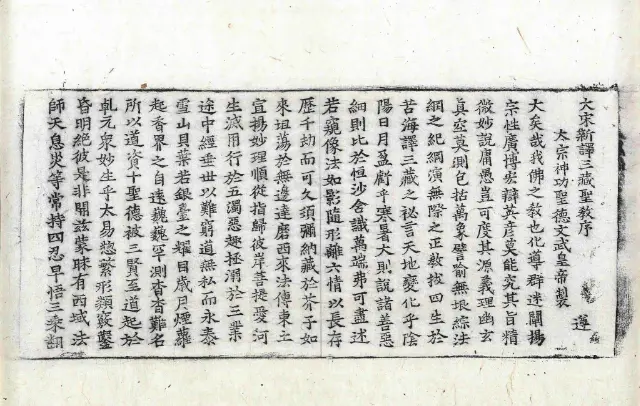 大宋新譯三藏聖教序
太宗神功聖德文武皇帝製
大矣哉我佛之教也化導群迷闡揚
宗性廣博宏辯英彥莫能究其旨精
微妙說庸愚豈可度其源義理幽玄
真空莫測包括萬象譬喻無垠綜法
網之紀綱演無際之正教拔四生於
苦海譯三藏之祕言天地變化乎陰
陽日月盈虧乎寒暑大則說諸善惡
細則比於恒沙含識萬端弗可盡述
若窺像法如影隨形離六情以長存
歷千劫而可久須彌納藏於芥子如
來坦蕩於無邊達磨西來法傳東土
宣揚妙理順從指歸彼岸菩提愛河
生滅用行於五濁惡趣拯溺於三業
途中經垂世以難窮道無私而永泰
雪山貝葉若銀臺之耀目歲月煙蘿
起香界之自遠巍巍罕測杳杳難名
所以道資十聖德被三賢至道起於
乹元衆妙生乎太易惣繁形類竅鑿
昏明絶彼是非開茲蒙昧有西域法
師天息災等常持四忍早悟三乘翻